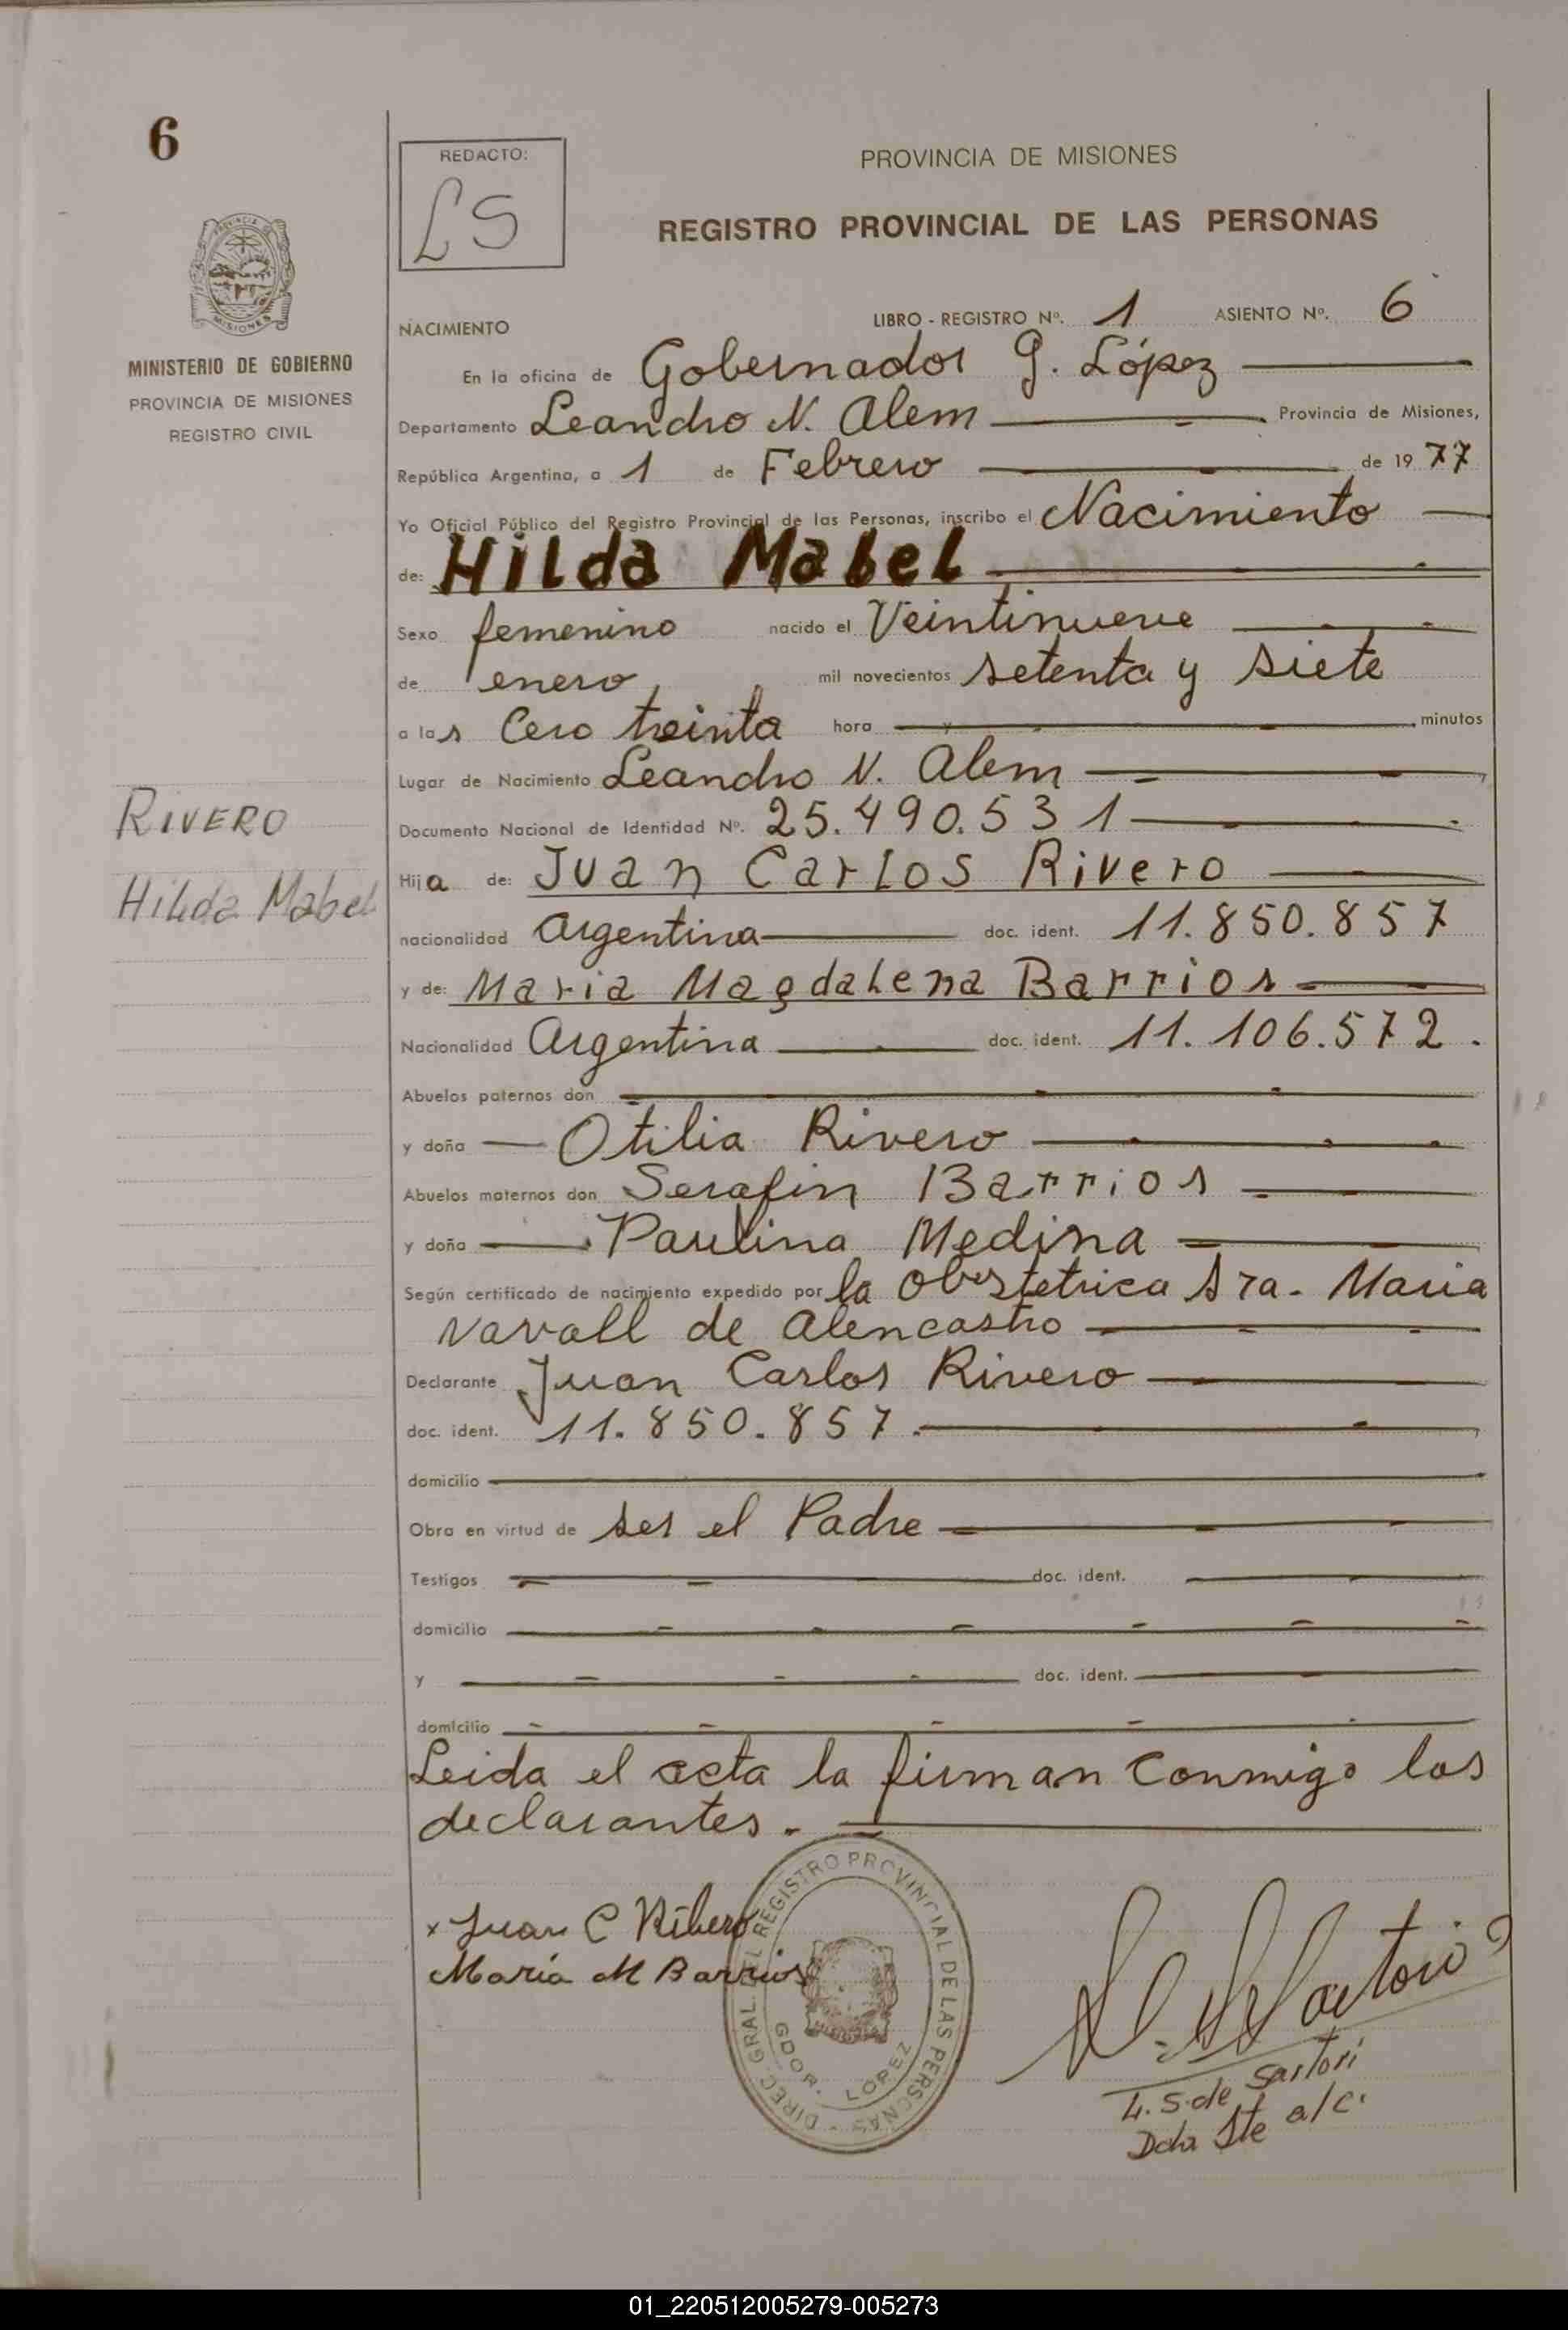 6
REDACTO:
LS
PROVINCIA DE MISIONES
REGISTRO PROVINCIAL DE LAS PERSONAS
MISIONES
MINISTERIO DE GOBIERNO
PROVINCIA DE MISIONES
REGISTRO CIVIL
NACIMIENTO
LIBRO - REGISTRO Nº. 1 ASIENTO Nº. 6
En la oficina de Gobernador G. López
Departamento Leandro N. Alem Provincia de Misiones,
República Argentina, a 1 de Febrero de 19 77
Yo Oficial Público del Registro Provincial de las Personas, inscribo el Nacimiento
de: Hilda Mabel
Sexo femenino nacido el Veintinueve
de enero mil novecientos setenta y siete
a las Cero treinta hora y minutos
Lugar de Nacimiento Leandro N. Alem
RIVERO
Documento Nacional de Identidad Nº. 25.490.531
Hija de: Juan Carlos Rivero
Hilda Mabel
nacionalidad Argentina doc. ident. 11.850.857
y de: Maria Magdalena Barrios
Nacionalidad Argentina doc. ident. 11.106.572.
Abuelos paternos don
y doña Otilia Rivero
Abuelos maternos don Serafin Barrios
y doña Paulina Medina
Según certificado de nacimiento expedido por la Obstetrica Sra. Maria
de Alencastro
Declarante Juan Carlos Rivero
doc. ident. 11.850.857.
domicilio
Obra en virtud de ser el Padre
Testigos doc. ident.
domicilio
y doc. ident.
domicilio
Leida el acta la firman conmigo los
declarantes.
x Juan C Ribero
María M Barrios
DIREC. GRAL. DEL REGISTRO PROVINCIAL DE LAS PERSONAS
GDOR. LOPEZ
L. S. de Sartori
a/c.
01_220512005279-005273